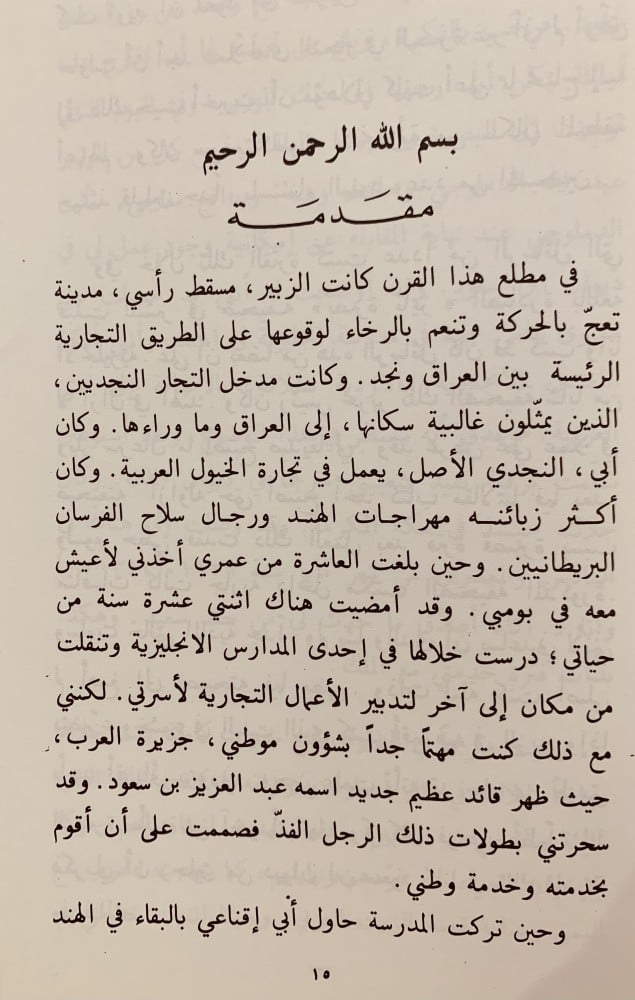 بسم الله الرحمن الرحيم
مقدمة
في مطلع هذا القرن كانت الزبير، مسقط رأسي، مدينة
تعجّ بالحركة وتنعم بالرخاء لوقوعها على الطريق التجارية
الرئيسة بين العراق ونجد. وكانت مدخل التجار النجديين،
الذين يمثّلون غالبية سكانها، إلى العراق وما وراءها. وكان
أبي، النجدي الأصل، يعمل في تجارة الخيول العربية. وكان
أكثر زبائنه مهراجات الهند ورجال سلاح الفرسان
البريطانيين. وحين بلغت العاشرة من عمري أخذني لأعيش
معه في بومبي. وقد أمضيت هناك اثنتي عشرة سنة من
حياتي؛ درست خلالها في إحدى المدارس الانجليزية وتنقلت
من مكان إلى آخر لتدبير الأعمال التجارية لأسرتي. لكنني
مع ذلك كنت مهتماً جداً بشؤون موطني، جزيرة العرب،
حيث ظهر قائد عظيم جديد اسمه عبد العزيز بن سعود. وقد
سحرتني بطولات ذلك الرجل الفذّ فصممت على أن أقوم
بخدمته وخدمة وطني.
وحين تركت المدرسة حاول أبي إقناعي بالبقاء في الهند
١٥